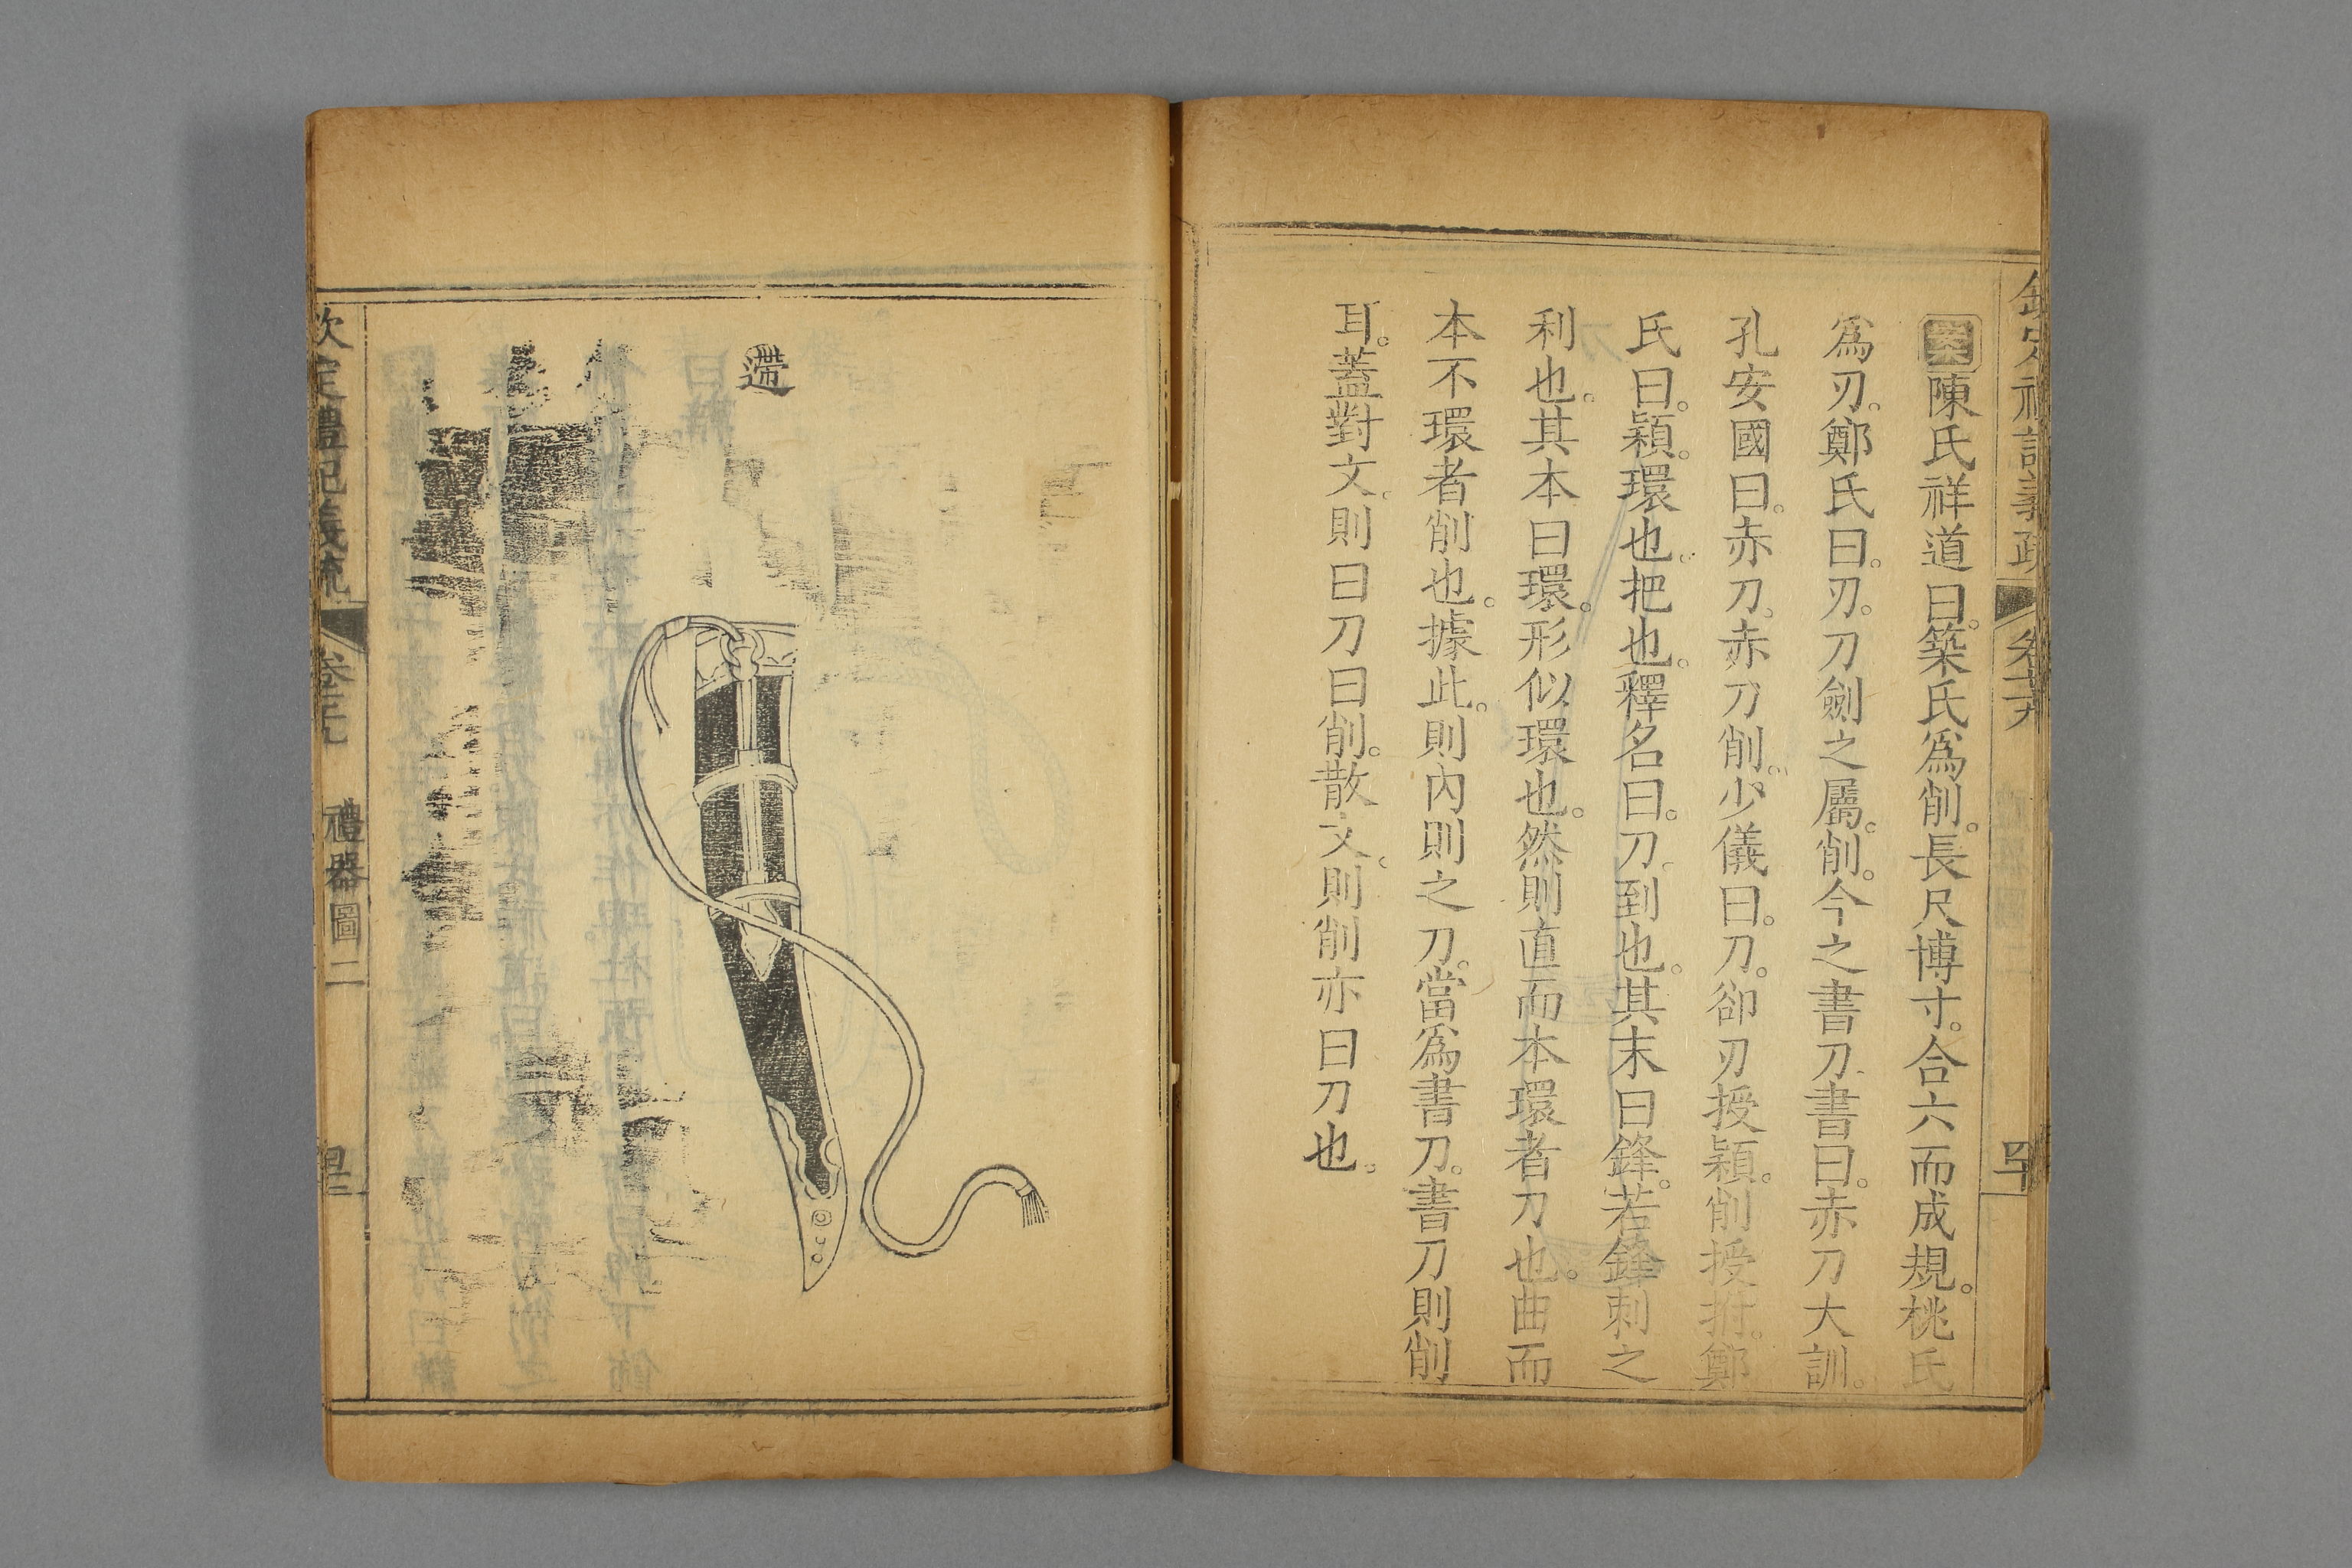 案陳氏祥道曰。築氏爲削。長尺博寸。合六而成規。桃氏
爲刃。鄭氏曰。刃。刀劍之屬。削。今之書刀。書曰。赤刀大訓。
孔安國曰。赤刀。赤刃削。少儀曰。刀。卻刃授穎。削授拊。鄭
氏曰。穎。環也。把也。釋名曰。刀。到也。其末曰鋒。若鋒刺之
利也。其本曰環。形似環也。然則直而本環者刀也。曲而
本不環者削也。據此。則內則之刀。當爲書刀。書刀則削
耳。蓋對文。則曰刀曰削。散文。則削亦曰刀也。
遰
欽定禮記義疏
禮器圖二